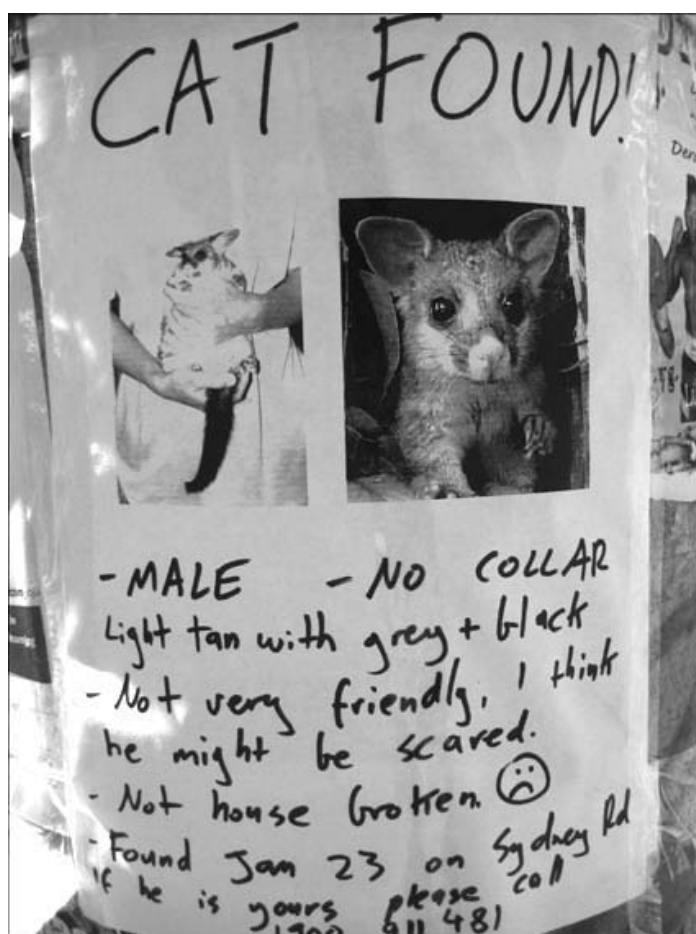 CAT FOUND!
- MALE - NO COLLAR
Light tan with grey + black
- Not very friendly, I think
he might be scared.
- Not house broken.
- Found Jan 23 on Sydney Rd
if he is yours please call
1900 911 481